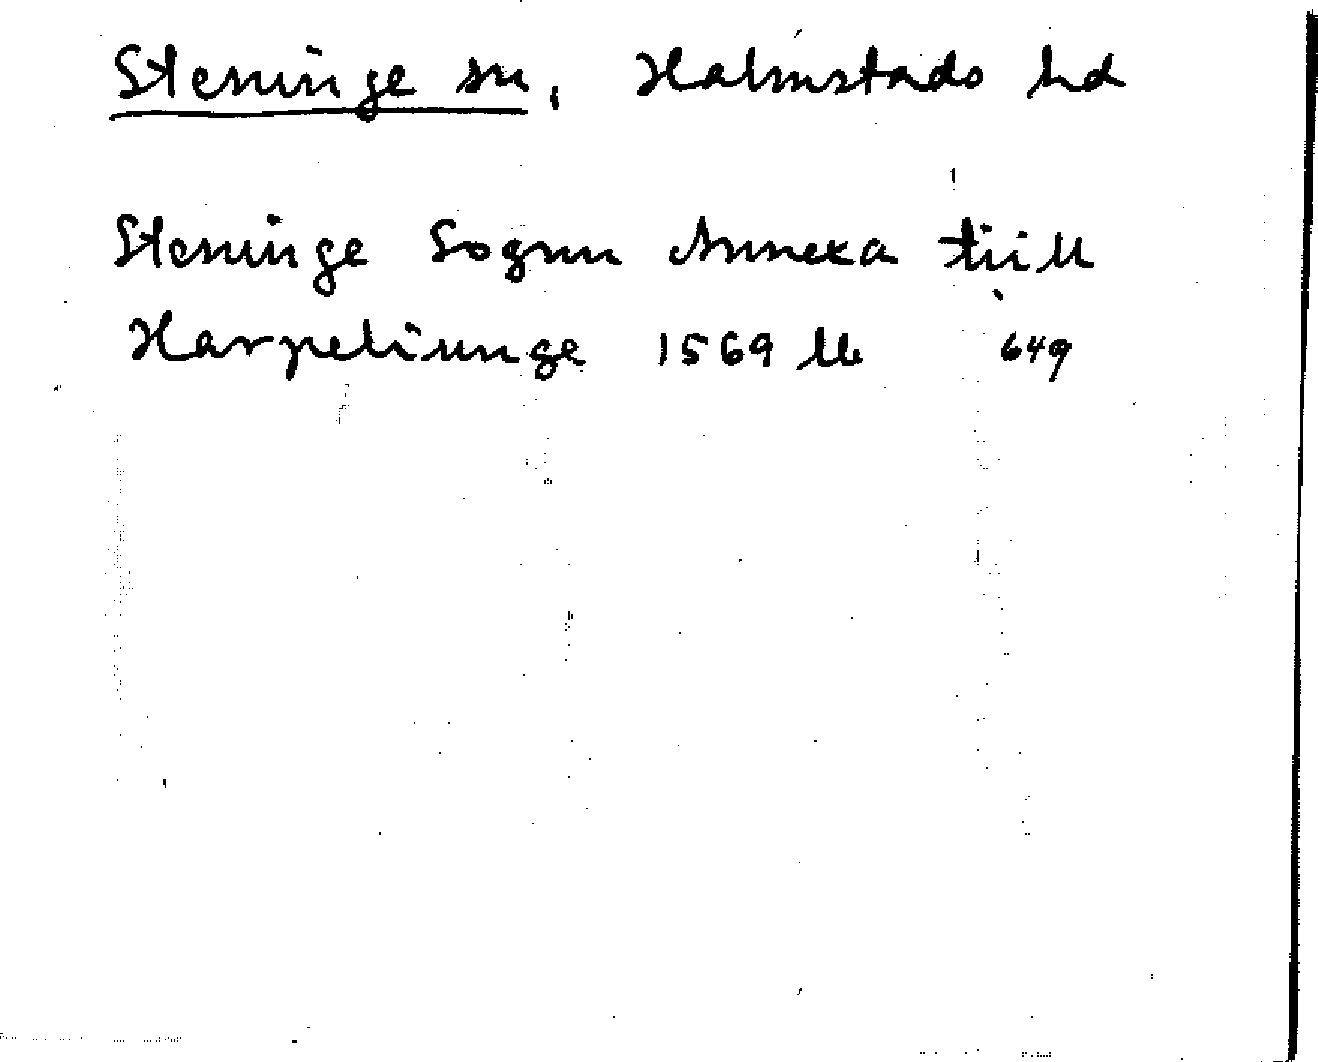 Steninge sn, Halmstads hd
Steninge Sognn Annexa tiill
Harpeliunge 1569 lb 649